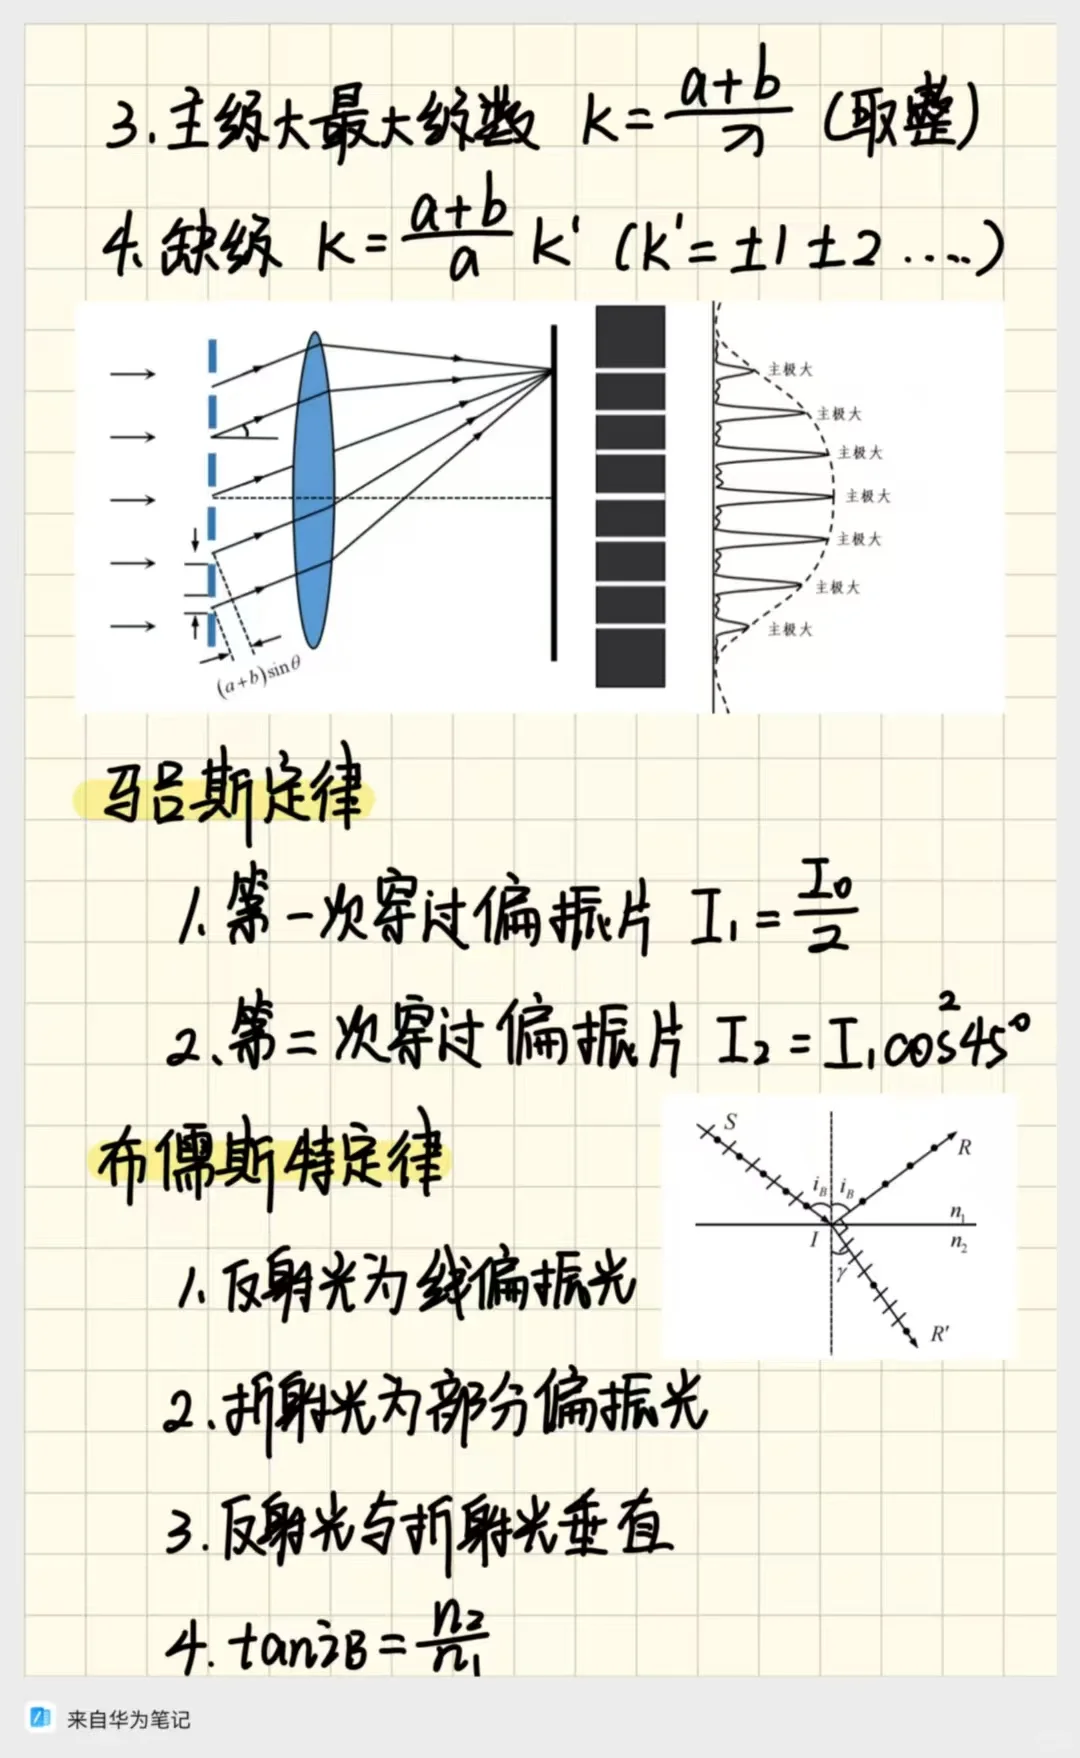 3.主级大最大级数 k=(a+b)/λ (取整)
4.缺级 k=(a+b)/a k' (k'=±1 ±2 .....)
主极大
主极大
主极大
主极大
主极大
主极大
主极大
(a+b)sinθ
马吕斯定律
1.第一次穿过偏振片 I₁=I₀/2
2.第二次穿过偏振片 I₂=I₁cos²45°
布儒斯特定律
S
R
i_B i_B
n₁
I
n₂
γ
R'
1.反射光为线偏振光
2.折射光为部分偏振光
3.反射光与折射光垂直
4.taniB=n₂/n₁
来自华为笔记